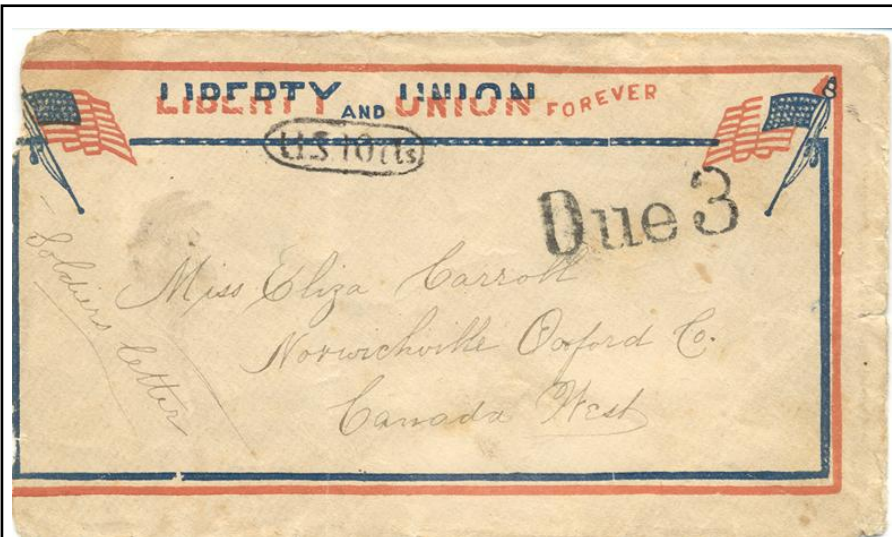 LIBERTY AND UNION FOREVER
U.S 10 Cts
Due 3
Soldiers Letter
Miss Eliza Carroll
Norwichville Oxford Co.
Canada West